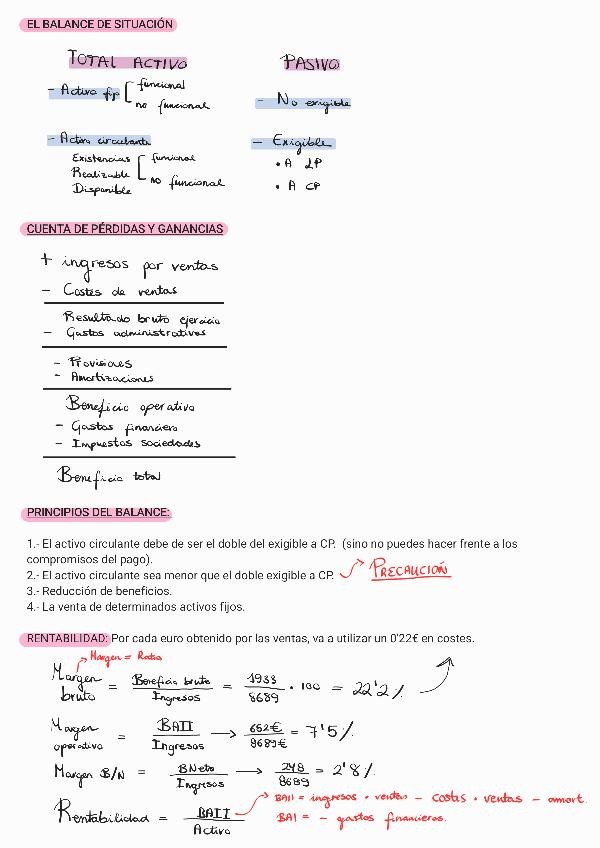 EL BALANCE DE SITUACIÓN
TOTAL ACTIVO
PASIVO
- Activo fijo
funcional
no funcional
- No exigible
- Activo circulante
- Exigible
Existencias
funcional
• A LP
Realizable
no funcional
Disponible
• A CP
CUENTA DE PÉRDIDAS Y GANANCIAS
+ ingresos por ventas
- Costes de ventas
Resultado bruto ejercicio
- Gastos administrativos
- Provisiones
- Amortizaciones
Beneficio operativo
- Gastos financiero
- Impuestos sociedades
Beneficio total
PRINCIPIOS DEL BALANCE:
1.- El activo circulante debe de ser el doble del exigible a CP. (sino no puedes hacer frente a los
compromisos del pago).
2.- El activo circulante sea menor que el doble exigible a CP.
PRECAUCIÓN
3.- Reducción de beneficios.
4.- La venta de determinados activos fijos.
RENTABILIDAD: Por cada euro obtenido por las ventas, va a utilizar un 0'22€ en costes.
Margen = Ratio
Margen bruto = Beneficio bruto / Ingresos = 1933 / 8689 • 100 = 22'2%
Margen operativo = BAII / Ingresos → 652€ / 8689€ = 7'5%
Margen B/N = BNeto / Ingresos → 248 / 8689 = 2'8%
Rentabilidad = BAII / Activo
BAII = ingresos • ventas - costes • ventas - amort.
BAI = - gastos financieros.